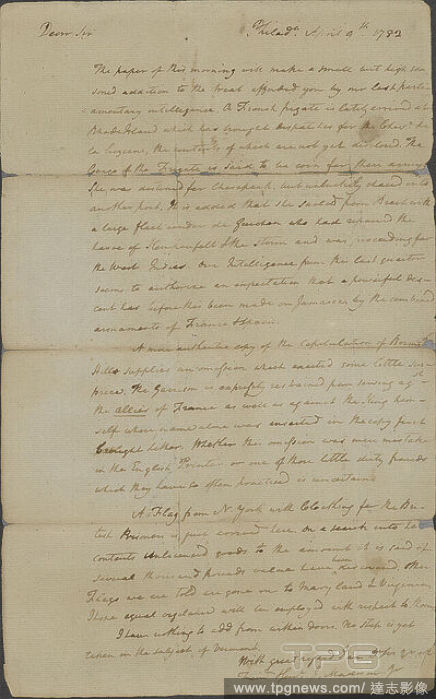 Dear Sir
Philada. April 9th 1782
The paper of this morning will make a small but high sea-
soned addition to the treat afforded you by our last parli-
amentary intelligence. A French frigate is lately arrived at
Rhode Island which has brought dispatches for the Chevr. de
la Luzerne, the contents of which are not yet disclosed. The
Cargo of the Frigate is said to be coin for their army.
She was destined for Chesapeak, but was chased into
another port. It is added that she sailed from Brest with
a large fleet under de Guichen who had repaired the
havoc of Kempenfelt & the storm and was proceeding for
the West Indies. Our Intelligence from the last quarter
seems to authorize an expectation that a powerful des-
cent has before this been made on Jamaica by the combined
armaments of France & Spain.
A more authentic copy of the Capitulation of Brimstone
Hill supplies an omission which excited some little sur-
prise. The Garrison is expressly restrained from serving agst.
the allies of France as well as against the King him-
self whose name alone was inserted in the copy first
brought hither. Whether this omission was mere mistake
in the English Printer or one of those little dirty frauds
which they have so often practised is uncertain.
A Flag from N. York with Cloathing for the Bri-
tish Prisoners is just arrived here. On a search into her
contents unlicenced goods to the amount it is said of
several thousand pounds value have been discovered. Other
Flags we are told are gone on to Maryland & Virginia.
I hope equal vigilance will be employed with respect to them.
I have nothing to add from within doors. No step is yet
taken on the subject of Vermont.
With great regard I am Dr Sir yr. obt
J. Madison Jr
TPG
www.tpgnews.com 達志影像